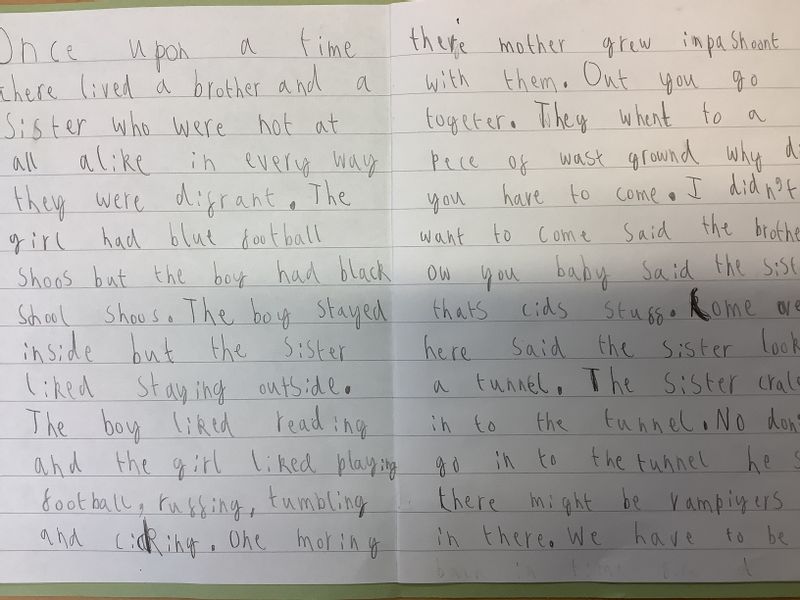 Once upon a time
there lived a brother and a
sister who were not at
all alike in every way
they were difrant. The
girl had blue football
shoos but the boy had black
school shous. The boy stayed
inside but the sister
liked staying outside.
The boy liked reading
and the girl liked playing
football, ruffing, tumbling
and cicking. One moring
there mother grew impashoant
with them. Out you go
togeter. They whent to a
pece of wast ground why
you have to come. I didn't
want to come said the brothe
ow you baby said the sist
thats cids stuff. Come ove
here said the sister look
a tunnel. The sister cral
in to the tunnel. No don
go in to the tunnel he s
there might be vampiyers
in there. We have to be